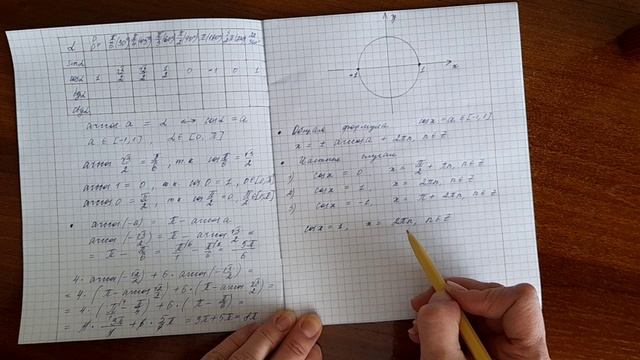 α 0 0° π/6 (30°) π/4 (45°) π/3 (60°) π/2 (90°) π (180°)
sin α
cos α 1 √3/2 √2/2 1/2 0 -1 0 1
tg α
ctg α
arccos a = α ↔ cos α = a
a ∈ [-1, 1], α ∈ [0, π]
arccos √3/2 = π/6, т.к. cos π/6 = √3/2
arccos 1 = 0, т.к. cos 0 = 1, 0 ∈ [0, π]
arccos 0 = π/2, т.к. cos π/2 = 0, π/2 ∈ [0, π]
• arccos(-a) = π - arccos a
arccos(-√3/2) = π - arccos √3/2 =
= π - π/6 = = 5π/6
4 · arccos(-√2/2) + 6 · arccos(-√3/2) =
= 4 · (π - arccos √2/2) + 6 · (π - arccos √3/2) =
= 3π + 5π = 8π
y
-1 1 x
• Общая формула cos x = a, a ∈ [-1, 1]
x = ± arccos a + 2πn, n ∈ Z
• Частные случаи
1) cos x = 0, x = π/2 + πn, n ∈ Z
2) cos x = 1, x = 2πn, n ∈ Z
3) cos x = -1, x = π + 2πn, n ∈ Z
cos x = 1, x = 2πn, n ∈ Z